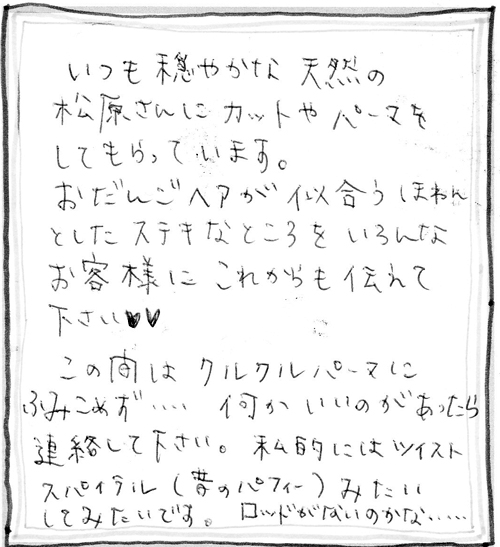 いつも穏やかな天然の
松原さんにカットやパーマを
してもらっています。
おだんごヘアが似合うほわん
としたステキなところをいろんな
お客様にこれからも伝えて
下さい♥♥
この間はクルクルパーマに
ふみこめず‥‥ 何かいいのがあったら
連絡して下さい。私的にはツイスト
スパイラル(昔のパフィー)みたい
してみたいです。ロッドがないのかな‥‥‥